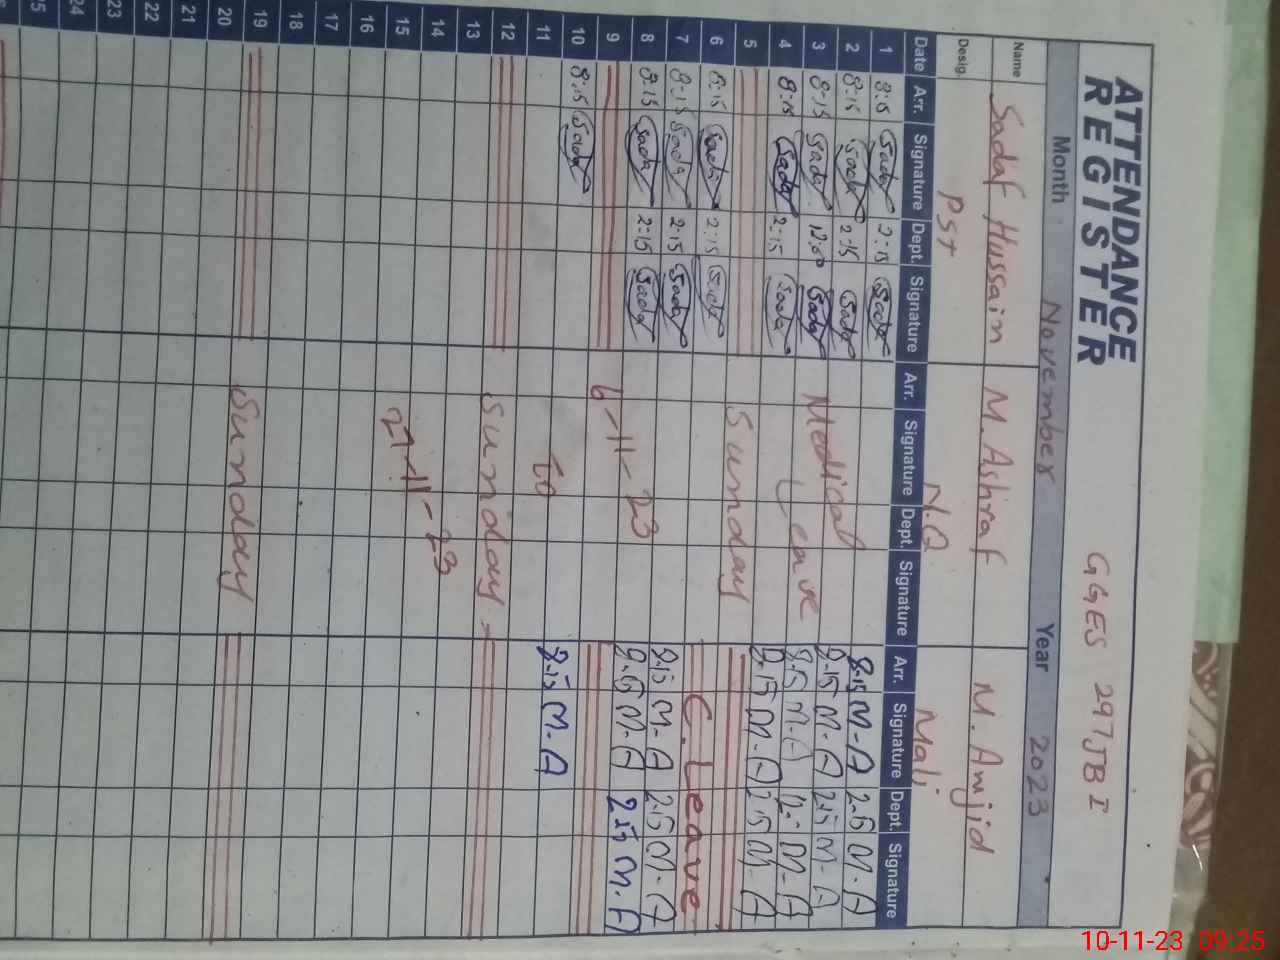 ATTENDANCE
REGISTER
GGES 297JB I
Month November Year 2023
Name Sadaf Hussain M. Ashraf M. Amjid
Desig. PST N.Q Mali
Date Arr. Signature Dept. Signature Arr. Signature Dept. Signature Arr. Signature Dept. Signature
1 8:15 Sadaf 2:15 Sadaf 8-15 M-A 2-15 M-A
2 8:15 Sadaf 2-15 Sadaf Medical 8-15 M-A 2-15 M-A
3 8-15 Sadaf 12:00 Sadaf Leave 8-15 M-A 12:- M-A
4 8:15 Sadaf 2:15 Sadaf 8-15 M-A 2-15 M-A
5 Sunday
6 8:15 Sadaf 2:15 Sadaf C. Leave
7 8-15 Sadaf 2:15 Sadaf 8-15 M-A 2-15 M-A
8 8:15 Sadaf 2:15 Sadaf 6-11-23 8-15 M-A 2-15 M-A
9
10 8:15 Sadaf to 8-15 M-A
11
12 Sunday
13
14 27-11-23
15
16
17
18
19 Sunday
20
21
22
23
24
25
10-11-23 09:25